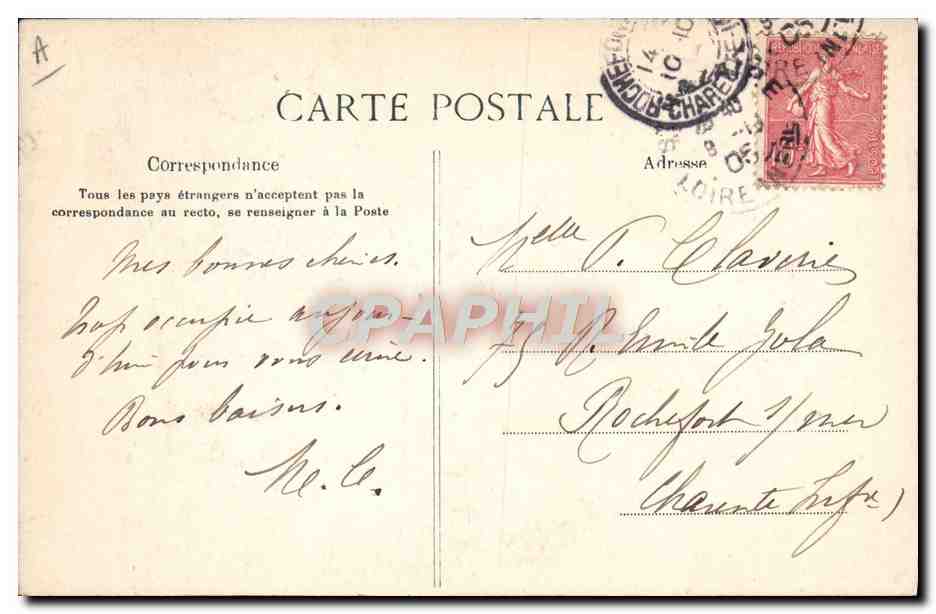 A
CARTE POSTALE
Correspondance
Tous les pays étrangers n'acceptent pas la
correspondance au recto, se renseigner à la Poste
Mes bonnes chéries.
Trop occupée aujour-
d'hui pour vous écrire.
Bons baisers.
M. C.
Adresse
Melle P. Claverie
75 R. Emile Zola
Rochefort s/mer
Charente Infre)
CPAPHIL
ROCHEFORT
14
10
CHARENTE
LOIRE INF
05
REPUBLIQUE FRANÇAISE
POSTES